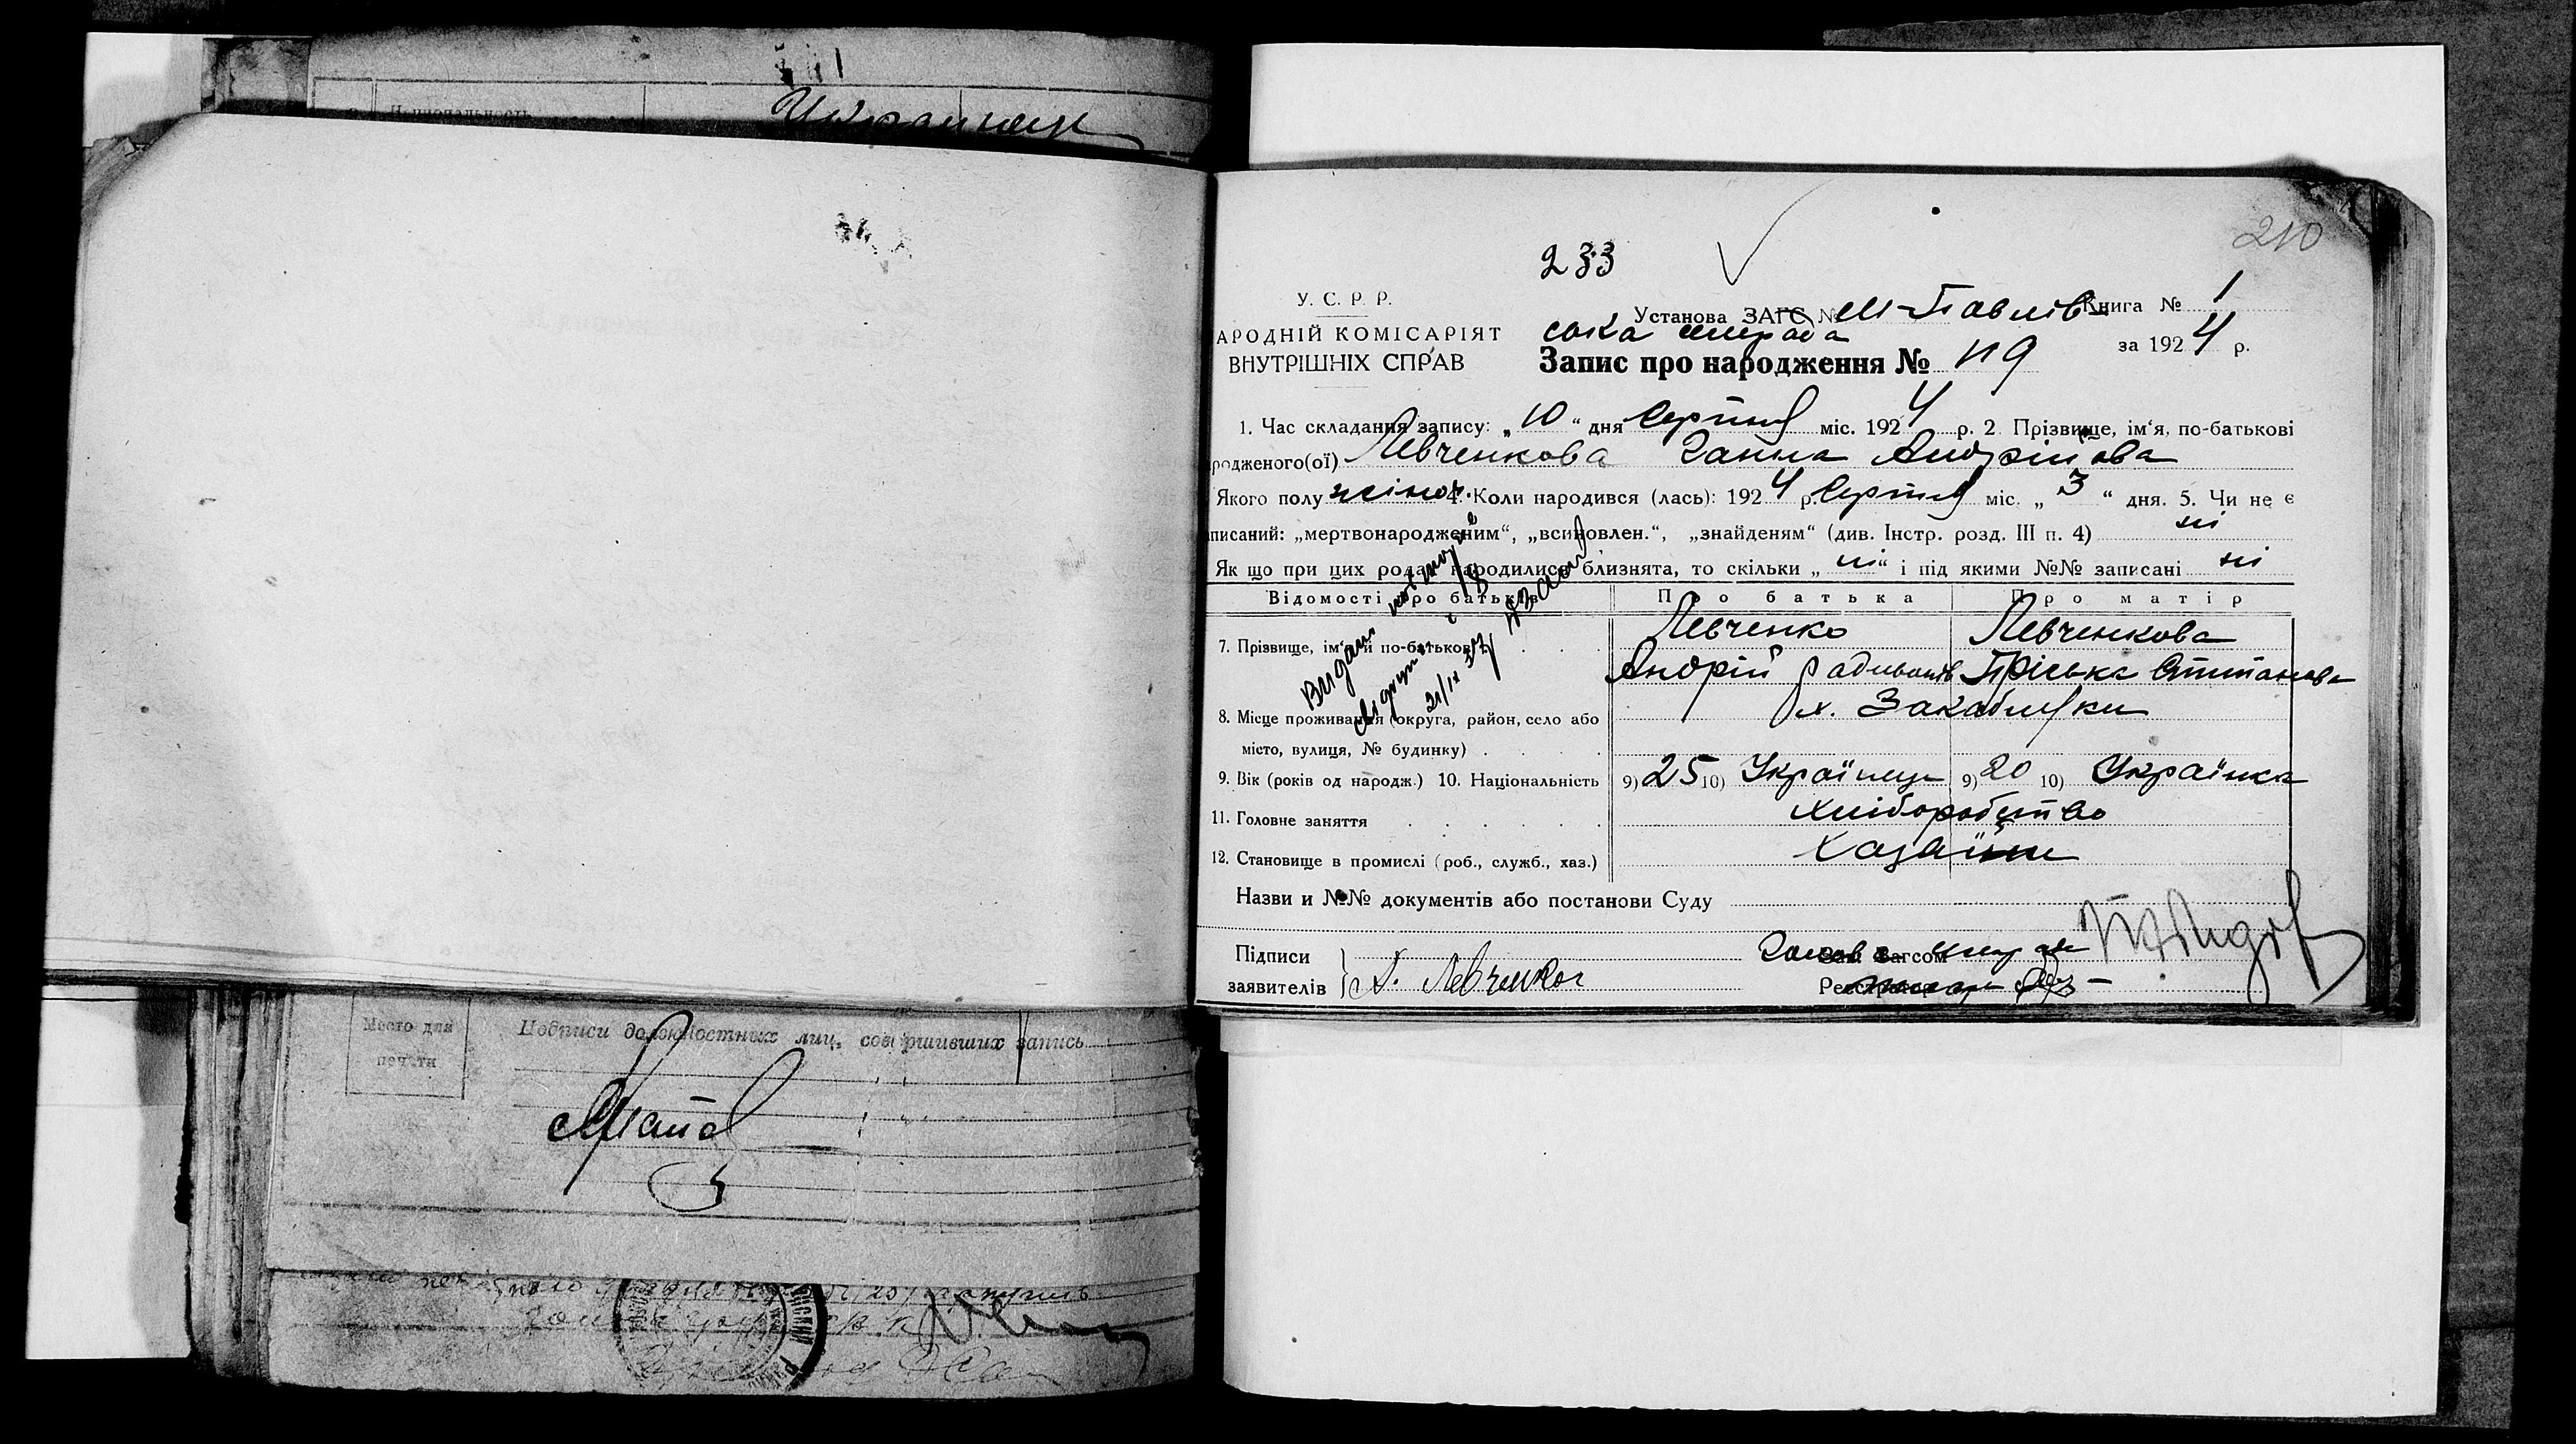 Национальность
Украинец
210
233
У. С. Р. Р.
Установа ЗАГС № М-Павлів- Книга № 1
АРОДНІЙ КОМІСАРІЯТ
ська сільрада
ВНУТРІШНІХ СПРАВ
Запис про народження № 119
за 1924 р.
1. Час складання запису: „10“ дня Серпня міс. 1924 р. 2 Прізвище, ім‘я, по-батькові
родженого(ої) Левченкова Ганна Андрійова
Якого полу жіноч. 4. Коли народився (лась): 1924 р. Серпня міс. „3“ дня. 5. Чи не є
писаний: „мертвонародженим“, „всиновлен.“, „знайденям“ (див. Інстр. розд. III п. 4) ні
Як що при цих родах народилися близнята, то скільки „ні“ і під якими №№ записані ні
Відомості про батьків Про батька Про матір
7. Прізвище, ім‘я й по-батькові
Левченко Левченкова
Андрій Радивонів Пріська Степанова
8. Місце проживання (округа, район, село або
місто, вулиця, № будинку)
х.
9. Вік (років од народж.) 10. Національність 9) 25 10) Українець 9) 20 10) Українка
11. Головне заняття Хліборобство
12. Становище в промислі (роб., служб., хаз.) Хазаїни
Видано
21/IX 37
Назви и №№ документів або постанови Суду
Підписи
заявителів
А. Левченко
Зав. Загсом
Реєстратор
Место для
печати
Подписи должностных лиц, совершивших запись